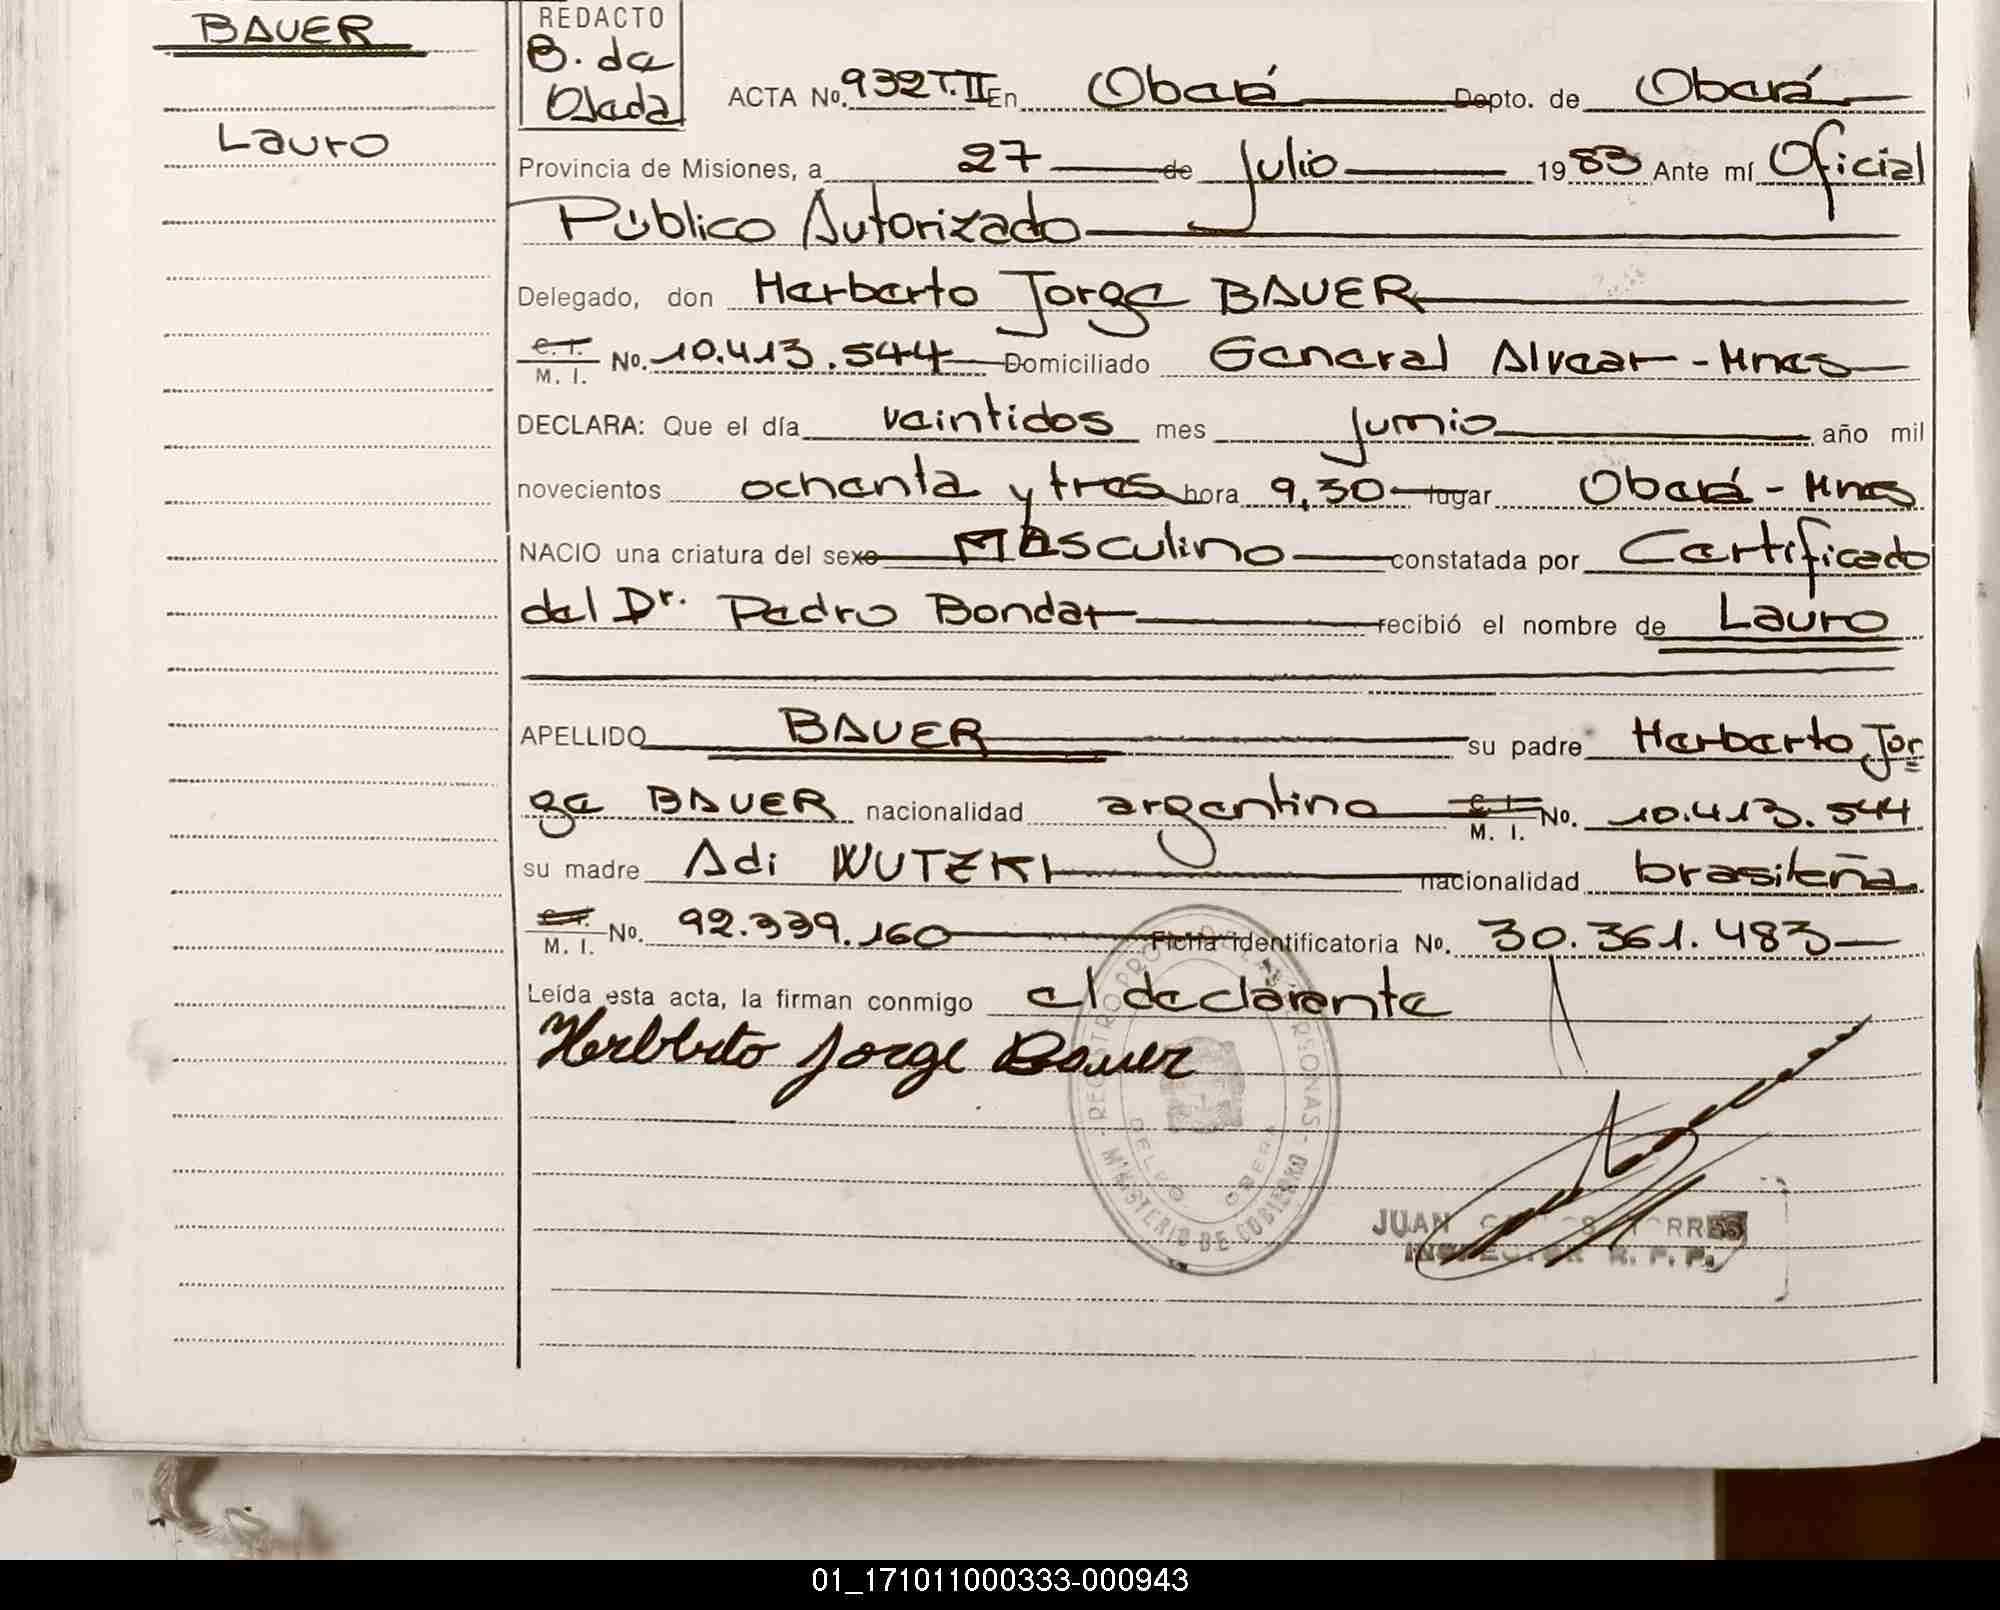 BAUER
Lauro
REDACTO
B. de
Ojeda
ACTA No. 932 T. II En Oberá Depto. de Oberá
Provincia de Misiones, a 27 de Julio 1983 Ante mí Oficial
Público Autorizado
Delegado, don Herberto Jorge BAUER
C. I. M. I. No. 10.413.544 Domiciliado General Alvear - Mnes
DECLARA: Que el día veintidos mes Junio año mil
novecientos ochenta y tres hora 9,30 lugar Oberá - Mnes
NACIO una criatura del sexo Masculino constatada por Certificado
del Dr. Pedro Bondar recibió el nombre de Lauro
APELLIDO BAUER su padre Herberto Jor
ge BAUER nacionalidad argentino C. I. M. I. No. 10.413.544
su madre Adi WUTZKI nacionalidad brasileña
C. I. M. I. No. 92.339.160 Ficha identificatoria No. 30.361.483
Leída esta acta, la firman conmigo el declarante
Herbberto Jorge Bauer
REGISTRO PROV. DE LAS PERSONAS
MINISTERIO DE GOBIERNO
OBERA
JUAN CARLOS TORRES
INSPECTOR R. P. P.
01_171011000333-000943